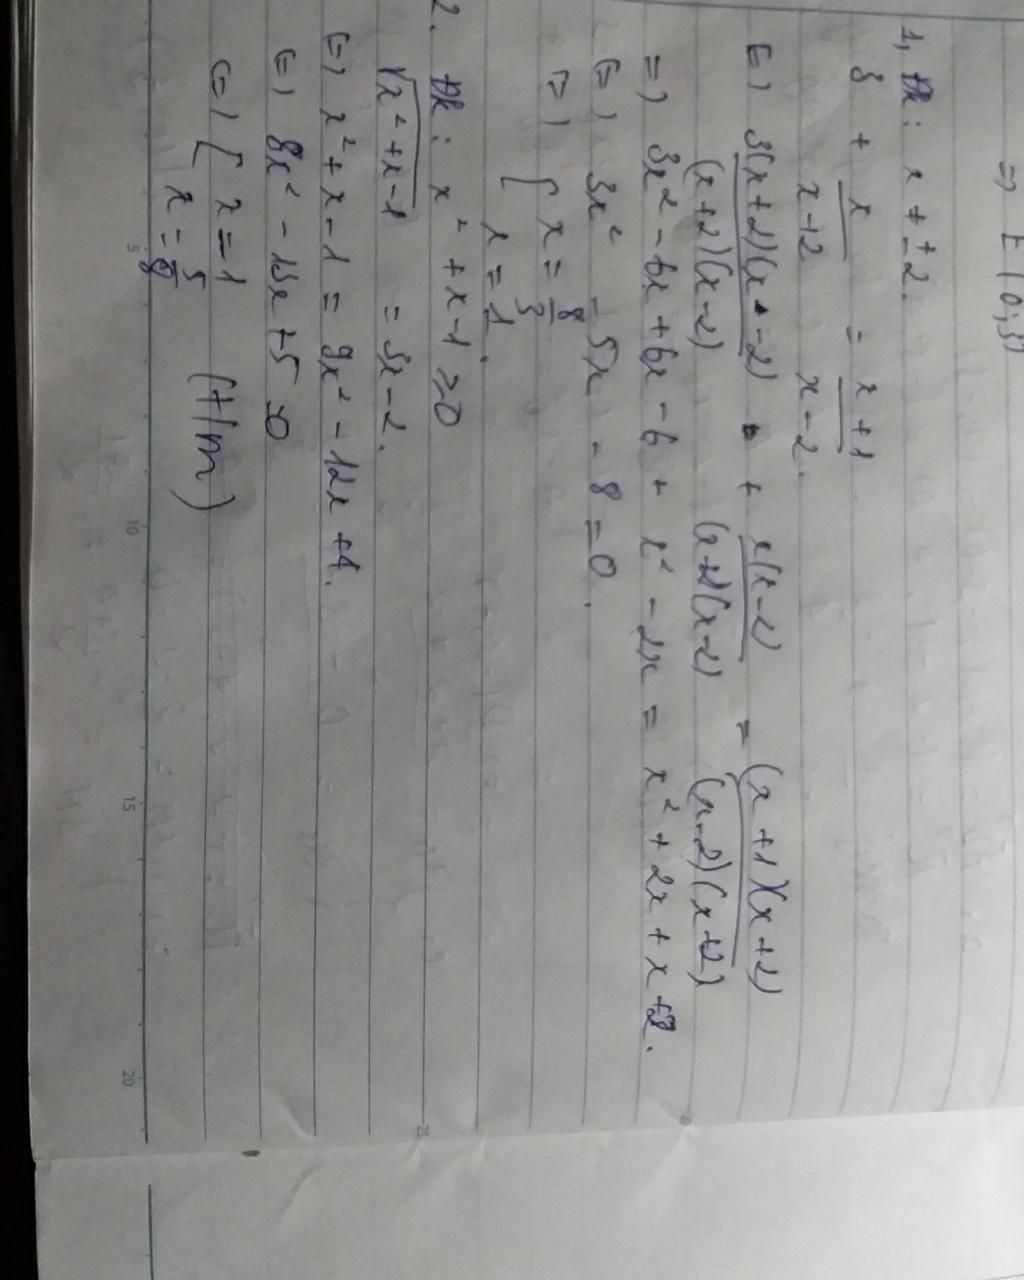 => E(0;3)
1, ĐK: x ≠ ±2.
3 + x/(x+2) = (x+1)/(x-2).
(=) 3(x+2)(x-2)/(x+2)(x-2) + x(x-2)/(x+2)(x-2) = (x+1)(x+2)/(x-2)(x+2)
=) 3x² - 6x + 6x - 6 + x² - 2x = x² + 2x + x + 2.
(=) 3x² - 5x - 8 = 0.
(=) [ x = 8/3
x = 1.
2. ĐK: x² + x - 1 ≥ 0
√(x² + x - 1) = 3x - 2.
(=) x² + x - 1 = 9x² - 12x + 4.
(=) 8x² - 13x + 5 = 0
(=) [ x = 1
x = 5/8 (t/m)
5 10 15 20
25